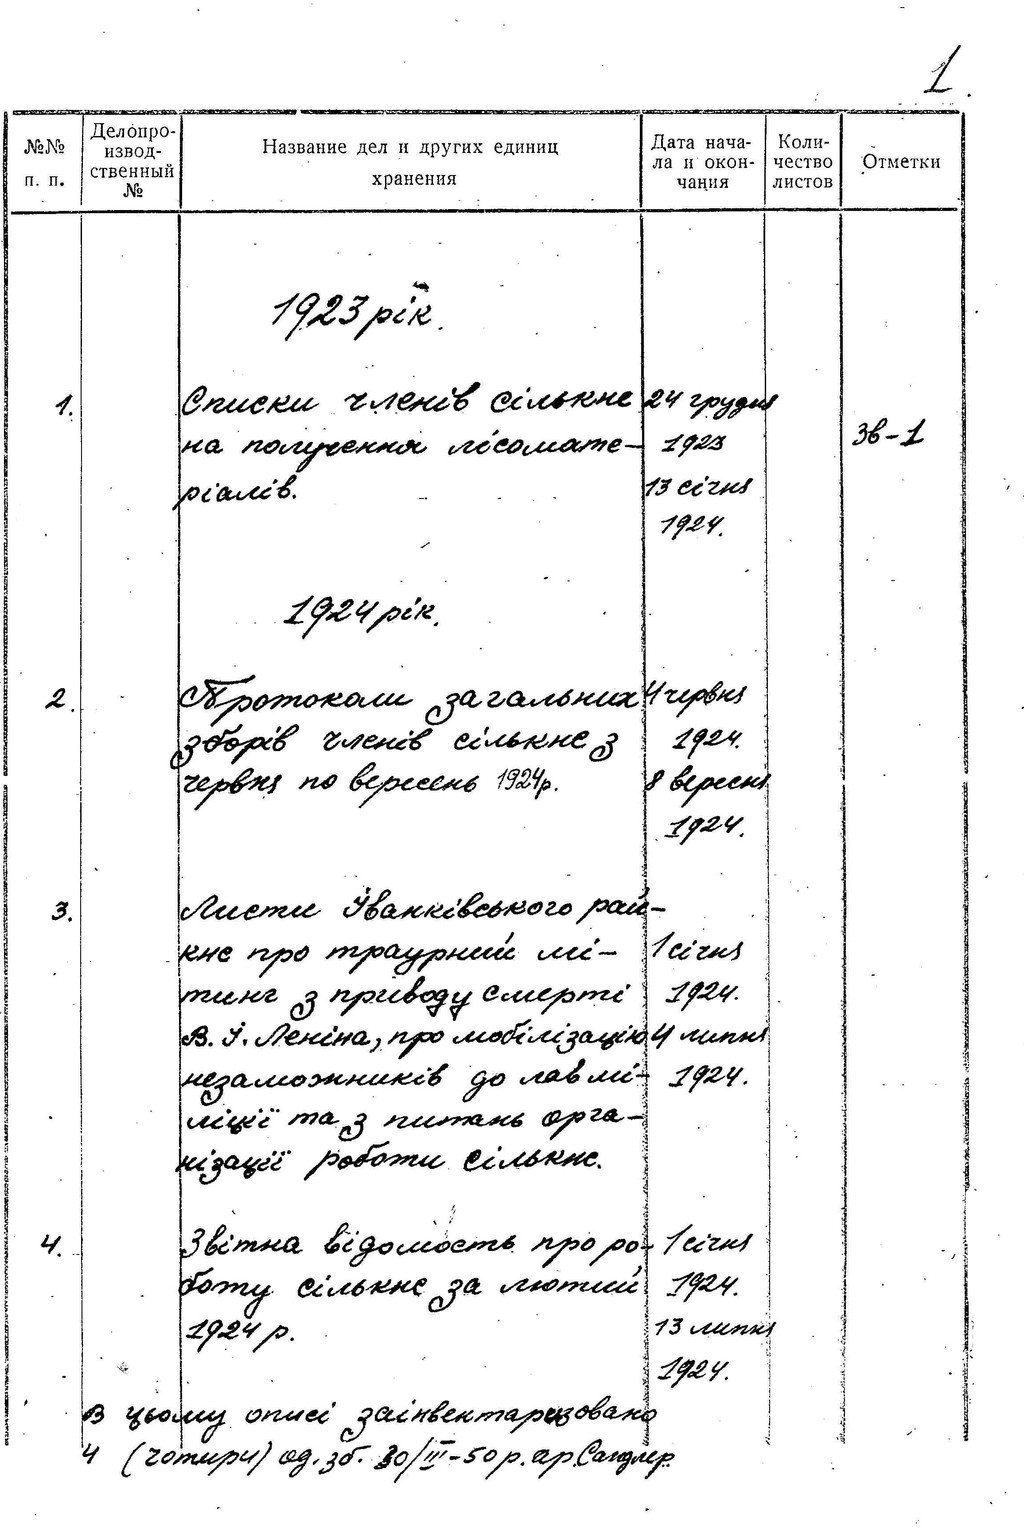 1.
№№ п. п.
Делопро-
извод-
ственный
№
Название дел и других единиц
хранения
Дата нача-
ла и окон-
чания
Коли-
чество
листов
Отметки
1923 рік.
1. Списки членів сількнс 24 грудня
на получення лісомате- 1923 Зв-1
ріалів. 13 січня
1924.
1924 рік.
2. Протоколи загальних 4 червня
зборів членів сількнс з 1924.
червня по вересень 1924р. 8 вересня
1924.
3. Листи Іванківського рай-
кнс про траурний мі- 1 січня
тинг з приводу смерті 1924.
В. І. Леніна, про мобілізацію 4 липня
незаможників до лав мі- 1924.
ліції та з питань орга-
нізації роботи сількнс.
4. Звітна відомость про ро- 1 січня
боту сількнс за лютий 1924.
1924 р. 13 липня
1924.
В цьому описі заінвентаризовано
4 (чотири) од. зб. 30/III-50 р. ар. Сандлер